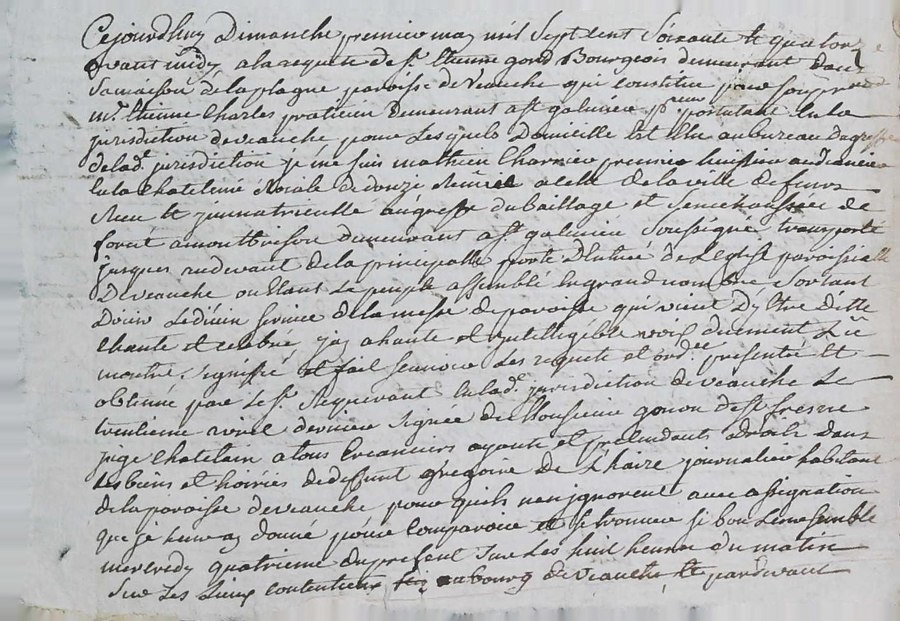 Cejourdhuy Dimanche premier may mil Sept Cent Soixante et quatorze
avant midy a la requete de sr. Etienne gond Bourgeois demeurant dans
Sa maison de la plagne paroisse de veauche qui constitue pour son procr
mr. Etienne Charles praticien Demeurant a st galmier postulant en la
jurisdiction de veauche, pour Lesquels Domicille Est Elu au bureau du greffe
de lad. jurisdiction je me suis mathieu Charmier premier huissier audiancier
en la Chatelnie Roiale de donzy Reunie a celle de la ville de feurs
Receu et immatricullé au greffe du Baillage et Senechaussée de
forét a montbrison demeurant a st galmier Soussigné, transporté
jusques au devant de la principalle porte d'Entrée de L'eglise paroissialle
De veauche ou Etant Le peuple assemblé En grand nombre, Sortant
D'ouir Le divin service de la messe de paroisse qui vient D'y Etre ditte
Chanté et celebré jay a haute et intelligible voix duement Lu
montré Signiffié et fait scavoir Les requete et ordce. presentée et
obtenue par Le sr. Requerant En lad. jurisdiction de veauche Le
trentieme avril dernier Signée de Monsieur gonon de st fresne
juge Chatelain a tous Creanciers ayants et pretendants Droits Dans
Les biens et hoiries de deffunt gregoire de L'haire journalier habitant
de la paroisse de veauche pour quils nen ignorent avec assignation
que je leur ay donné pour Comparoir et se trouver si bon Leur semble
mercredy quatrieme du present Sur Les huit heures du matin
Sur Les Lieux contentieux au bourg de veauche, et pardevant